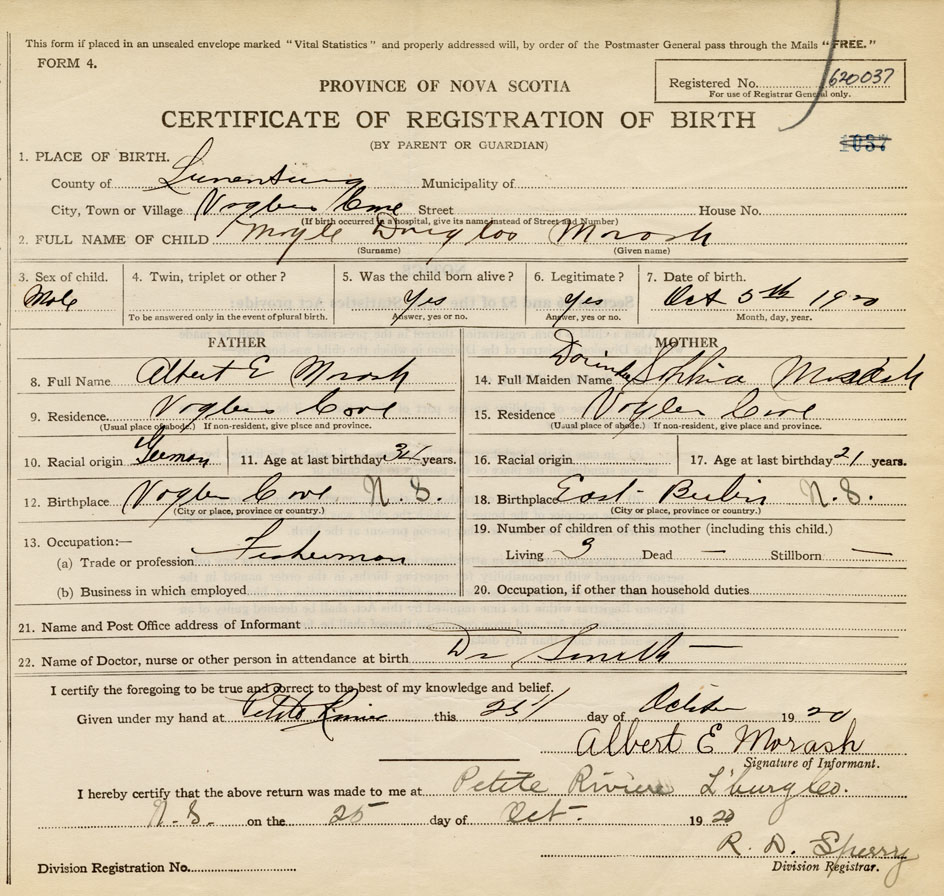 This form if placed in an unsealed envelope marked "Vital Statistics" and properly addressed will, by order of the Postmaster General pass through the Mails "FREE."
FORM 4.
Registered No. 620037
For use of Registrar General only.
PROVINCE OF NOVA SCOTIA
CERTIFICATE OF REGISTRATION OF BIRTH
(BY PARENT OR GUARDIAN)
1037
1. PLACE OF BIRTH.
County of Lunenburg Municipality of
City, Town or Village Voglers Cove Street House No.
(If birth occurred in a hospital, give its name instead of Street and Number)
2. FULL NAME OF CHILD Moyle Douglas Morash
(Surname) (Given name)
3. Sex of child. 4. Twin, triplet or other? 5. Was the child born alive? 6. Legitimate? 7. Date of birth.
Male Yes Yes Oct 5th 1920
To be answered only in the event of plural birth. Answer, yes or no. Answer, yes or no. Month, day, year.
FATHER MOTHER
8. Full Name Albert E Morash 14. Full Maiden Name Sophia
9. Residence Voglers Cove 15. Residence Vogler Cove
(Usual place of abode.) If non-resident, give place and province. (Usual place of abode.) If non-resident, give place and province.
10. Racial origin German 11. Age at last birthday years. 16. Racial origin 17. Age at last birthday 21 years.
12. Birthplace Vogler Cove N. S. 18. Birthplace East N. S.
(City or place, province or country.) (City or place, province or country.)
13. Occupation:— 19. Number of children of this mother (including this child.)
(a) Trade or profession Fisherman Living 3 Dead — Stillborn —
(b) Business in which employed 20. Occupation, if other than household duties
21. Name and Post Office address of Informant
22. Name of Doctor, nurse or other person in attendance at birth Dr Smith —
I certify the foregoing to be true and correct to the best of my knowledge and belief.
Given under my hand at Petite Riviere this 25 day of October 1920
Albert E Morash
Signature of Informant.
I hereby certify that the above return was made to me at Petite Riviere L'burg Co.
N. S. on the 25 day of Oct. 1920
R. D. Sperry
Division Registration No. Division Registrar.